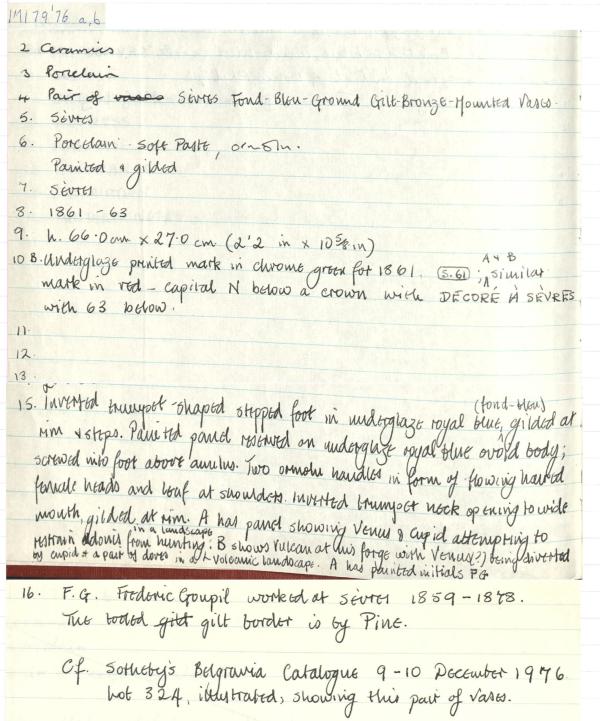 IM179'76 a,b
2 Ceramics
3 Porcelain
4 Pair of vases Sèvres Fond-Bleu-Ground Gilt-Bronze-Mounted Vases.
5. Sèvres
6. Porcelain Soft Paste, ormolu.
Painted & gilded
7. Sèvres
8. 1861-63
9. h. 66.0cm x 27.0 cm (2'2 in x 10 5/8 in)
10 B. Underglaze printed mark in chrome green for 1861. S.61 ; A & B similar
mark in red - capital N below a crown with DÉCORÉ À SÈVRES
with 63 below.
11.
12.
13.
15. Inverted trumpet-shaped stepped foot in underglaze royal blue, (fond-bleu) gilded at
rim & steps. Painted panel reserved on underglaze royal blue ovoid body;
screwed into foot above annulus. Two ormolu handles in form of flowing haired
female heads and leaf at shoulders. Inverted trumpet neck opening to wide
mouth, gilded at rim. A has panel showing Venus & Cupid attempting to
restrain Adonis in a landscape from hunting: B shows Vulcan at his forge with Venus(?) being diverted
by cupid & a pair of doves in a volcanic landscape. A has painted initials FG
16. F.G. Frederic Goupil worked at Sèvres 1859-1878.
The gilt gilt border is by Pine.
Cf. Sotheby's Belgravia Catalogue 9-10 December 1976
Lot 324, illustrated, showing this pair of vases.